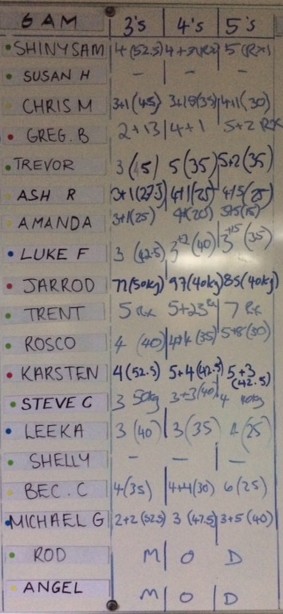 6 AM 3's 4's 5's
SHINYSAM 4 (52.5) 5 (RX)
SUSAN H - - -
CHRIS M 3+1 (45) 3+18 (35) 4+11 (30)
GREG. B 2+13 4+1 5+2 RX
TREVOR 3 5 (35) 5+2 (35)
ASH R 3+1 (27.5) 4+1 (25) 4/5 (25)
AMANDA 3+1 (25) (25)
LUKE F 3 (42.5) (40) (35)
JARROD 77 (50kg) 97 (40kg) 85 (40kg)
TRENT 5 RX 5+23 RX 7 RX
ROSCO 4 (40) (35) 5+8 (30)
KARSTEN 4 (52.5) 5+4 (42.5) 5+3 (42.5)
STEVE C 3 50kg 3+3 (40) 4 40kg
LEEKA 3 (40) 3 (35) (25)
SHELLY - - -
BEC. C 4 (35) 4+4 (30) 6 (25)
MICHAEL G 2+2 (52.5) 3 (47.5) 3+5 (40)
ROD M O D
ANGEL M O D